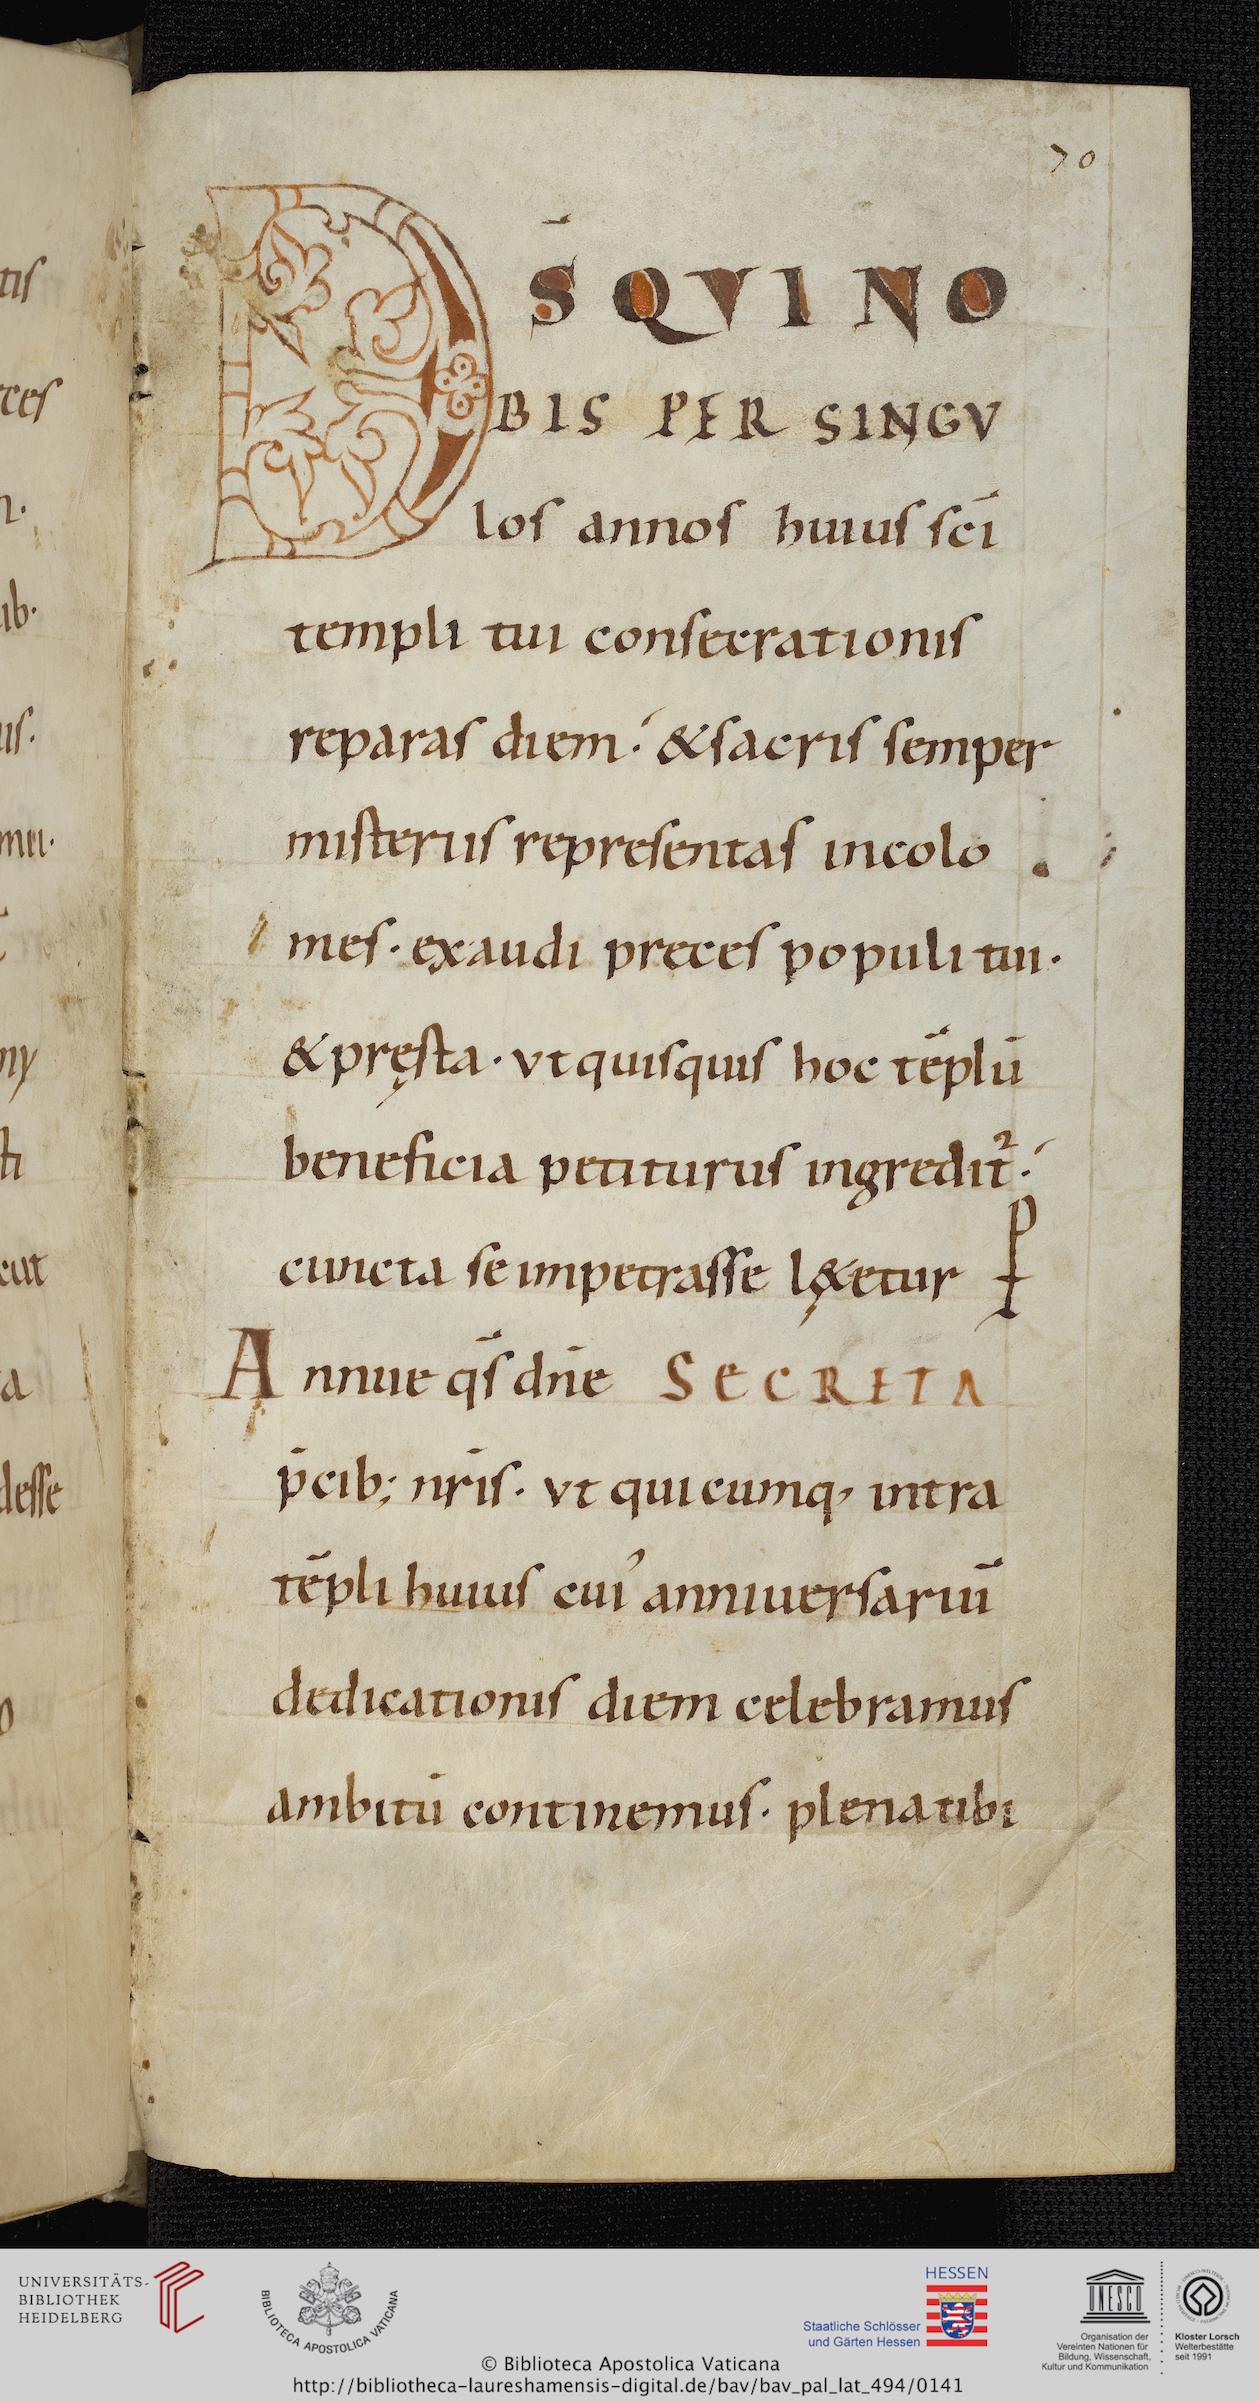 70
D S̄ QVI NO
BIS PER SINGV
los annos huius sc̄i
templi tui consecrationis
reparas diem· &sacris semper
misteriis representas incolo
mes· exaudi preces populi tui·
&pręsta· vt quisquis hoc tēplū
beneficia petiturus ingredit᷑·
cuncta se impetrasse lę&etur P
Annue qs̄ dn̄e SECRETA
p̄cib; nr̄is· vt quicumq, intra
tēpli huius cui' anniuersariū
dedicationis diem celebramus
ambitū continemus· plena tibi
tis
ces
ib·
us·
cut
a
desse
UNIVERSITÄTS-
BIBLIOTHEK
HEIDELBERG
BIBLIOTECA APOSTOLICA VATICANA
HESSEN
Staatliche Schlösser
und Gärten Hessen
UNESCO
Organisation der
Vereinten Nationen für
Bildung, Wissenschaft,
Kultur und Kommunikation
Kloster Lorsch
Welterbestätte
seit 1991
© Biblioteca Apostolica Vaticana
http://bibliotheca-laureshamensis-digital.de/bav/bav_pal_lat_494/0141